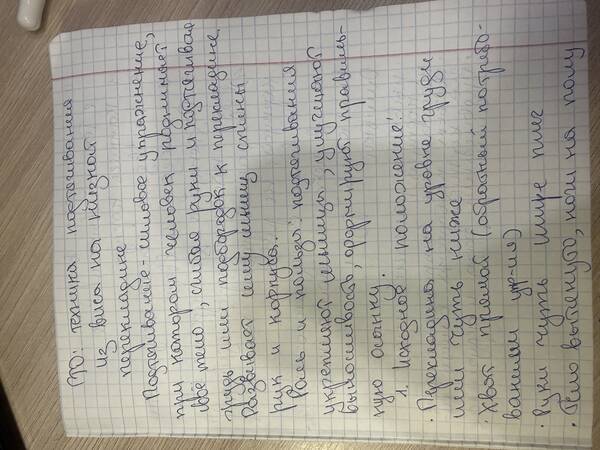 ТО: техника подтягивания
из виса на низкой
перекладине
Подтягивание - силовое упражнение,
при котором человек поднимает
своё тело, сгибая руки и подтягивая
грудь или подбородок к перекладине.
Развивает силу мышц спины
рук и корпуса.
Роль и польза: подтягивания
укрепляют мышцы, улучшают
выносливость, формируют правиль-
ную осанку.
1. Исходное положение:
• Перекладина на уровне груди
или чуть ниже
• Хват прямой (обратный по требо-
ваниям упр-ия)
• Руки чуть шире плеч
• Тело вытянуто, ноги на полу